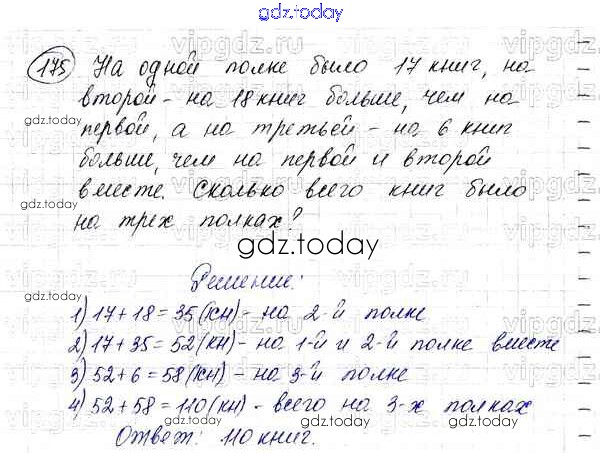 gdz.today
175 На одной полке было 17 книг, на
второй - на 18 книг больше, чем на
gdz.today
первой, а на третьей - на 6 книг
больше, чем на первой и второй
вместе. Сколько всего книг было
gdz.today
на трех полках?
gdz.today
Решение:
gdz.today
1) 17 + 18 = 35 (кн) - на 2-й полке
2) 17 + 35 = 52 (кн) - на 1-й и 2-й полке вместе
3) 52 + 6 = 58 (кн) - на 3-й полке
gdz.today
4) 52 + 58 = 110 (кн) - всего на 3-х полках
Ответ: 110 книг.
gdz.today